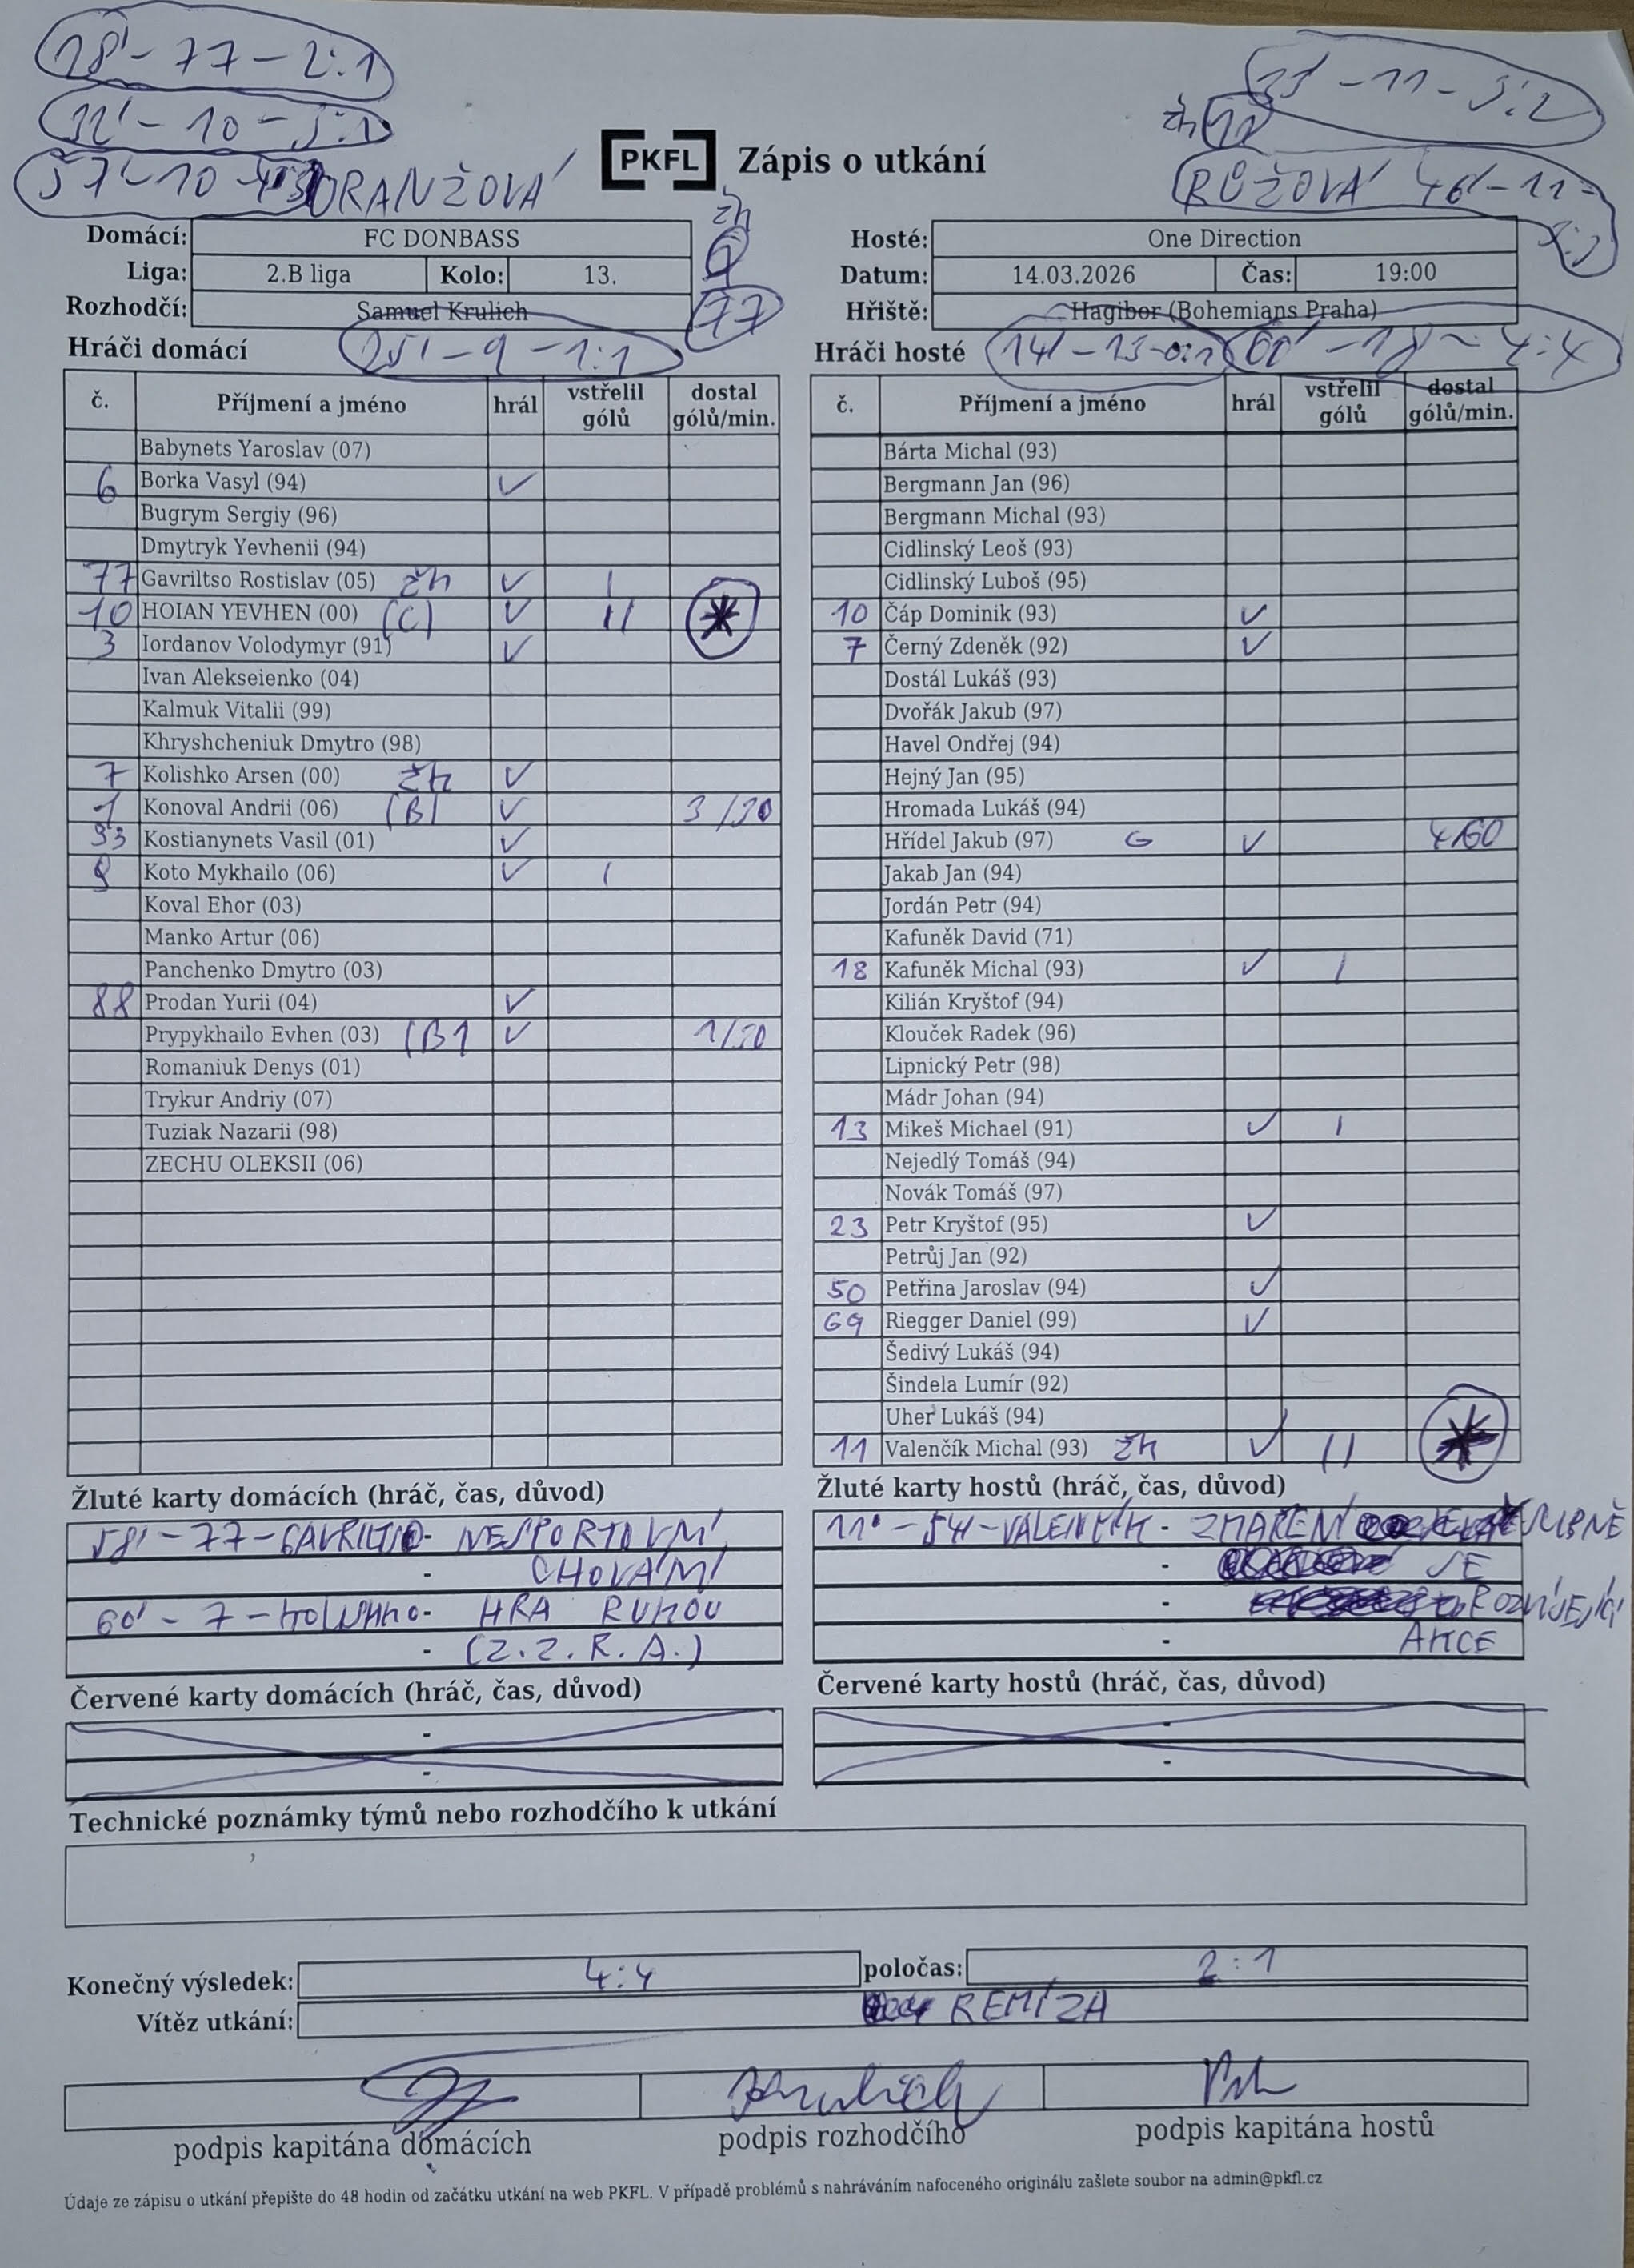 28' - 77 - 2:1
32' - 10 - 3:1
57' - 10 - 4:3
ORANŽOVÁ
[PKFL] Zápis o utkání
35' - 11 - 3:2
žk 11
RŮŽOVÁ 46' - 11 -
žk
Domácí: FC DONBASS
Liga: 2.B liga Kolo: 13.
Rozhodčí: Samuel Krulich
77
Hosté: One Direction
Datum: 14.03.2026 Čas: 19:00
Hřiště: Hagibor (Bohemians Praha)
Hráči domácí 25' - 9 - 1:1
Hráči hosté 14' - 13 - 0:1 60' - 18 - 4:4
č. Příjmení a jméno hrál vstřelil gólů dostal gólů/min.
Babynets Yaroslav (07)
6 Borka Vasyl (94) ✓
Bugrym Sergiy (96)
Dmytryk Yevhenii (94)
77 Gavriltso Rostislav (05) žk ✓ I
10 HOIAN YEVHEN (00) (C) ✓ II *
3 Iordanov Volodymyr (91) ✓
Ivan Alekseienko (04)
Kalmuk Vitalii (99)
Khryshcheniuk Dmytro (98)
7 Kolishko Arsen (00) žk ✓
1 Konoval Andrii (06) (B) ✓ 3/30
33 Kostianynets Vasil (01) ✓
9 Koto Mykhailo (06) ✓ I
Koval Ehor (03)
Manko Artur (06)
Panchenko Dmytro (03)
88 Prodan Yurii (04) ✓
Prypykhailo Evhen (03) (B) ✓ 1/30
Romaniuk Denys (01)
Trykur Andriy (07)
Tuziak Nazarii (98)
ZECHU OLEKSII (06)
č. Příjmení a jméno hrál vstřelil gólů dostal gólů/min.
Bárta Michal (93)
Bergmann Jan (96)
Bergmann Michal (93)
Cidlinský Leoš (93)
Cidlinský Luboš (95)
10 Čáp Dominik (93) ✓
7 Černý Zdeněk (92) ✓
Dostál Lukáš (93)
Dvořák Jakub (97)
Havel Ondřej (94)
Hejný Jan (95)
Hromada Lukáš (94)
Hřídel Jakub (97) G ✓ 4/60
Jakab Jan (94)
Jordán Petr (94)
Kafuněk David (71)
18 Kafuněk Michal (93) ✓ I
Kilián Kryštof (94)
Klouček Radek (96)
Lipnický Petr (98)
Mádr Johan (94)
13 Mikeš Michael (91) ✓ I
Nejedlý Tomáš (94)
Novák Tomáš (97)
23 Petr Kryštof (95) ✓
Petrůj Jan (92)
50 Petřina Jaroslav (94) ✓
69 Riegger Daniel (99) ✓
Šedivý Lukáš (94)
Šindela Lumír (92)
Uher Lukáš (94)
11 Valenčík Michal (93) žk ✓ II *
Žluté karty domácích (hráč, čas, důvod)
58' - 77 - GAVRILTSO - NESPORTOVNÍ
- CHOVÁNÍ
60' - 7 - KOLISHKO - HRA RUKOU
- (Z.Z.R.A.)
Žluté karty hostů (hráč, čas, důvod)
11' - 54 - VALENČÍK - ZMAŘENÍ SLIBNĚ
- SE
- ROZVÍJEJÍCÍ
- AKCE
Červené karty domácích (hráč, čas, důvod)
-
-
Červené karty hostů (hráč, čas, důvod)
-
-
Technické poznámky týmů nebo rozhodčího k utkání
Konečný výsledek: 4:4 poločas: 2:1
Vítěz utkání: REMÍZA
Krulich
podpis kapitána domácích podpis rozhodčího podpis kapitána hostů
Údaje ze zápisu o utkání přepište do 48 hodin od začátku utkání na web PKFL. V případě problémů s nahráváním nafoceného originálu zašlete soubor na admin@pkfl.cz